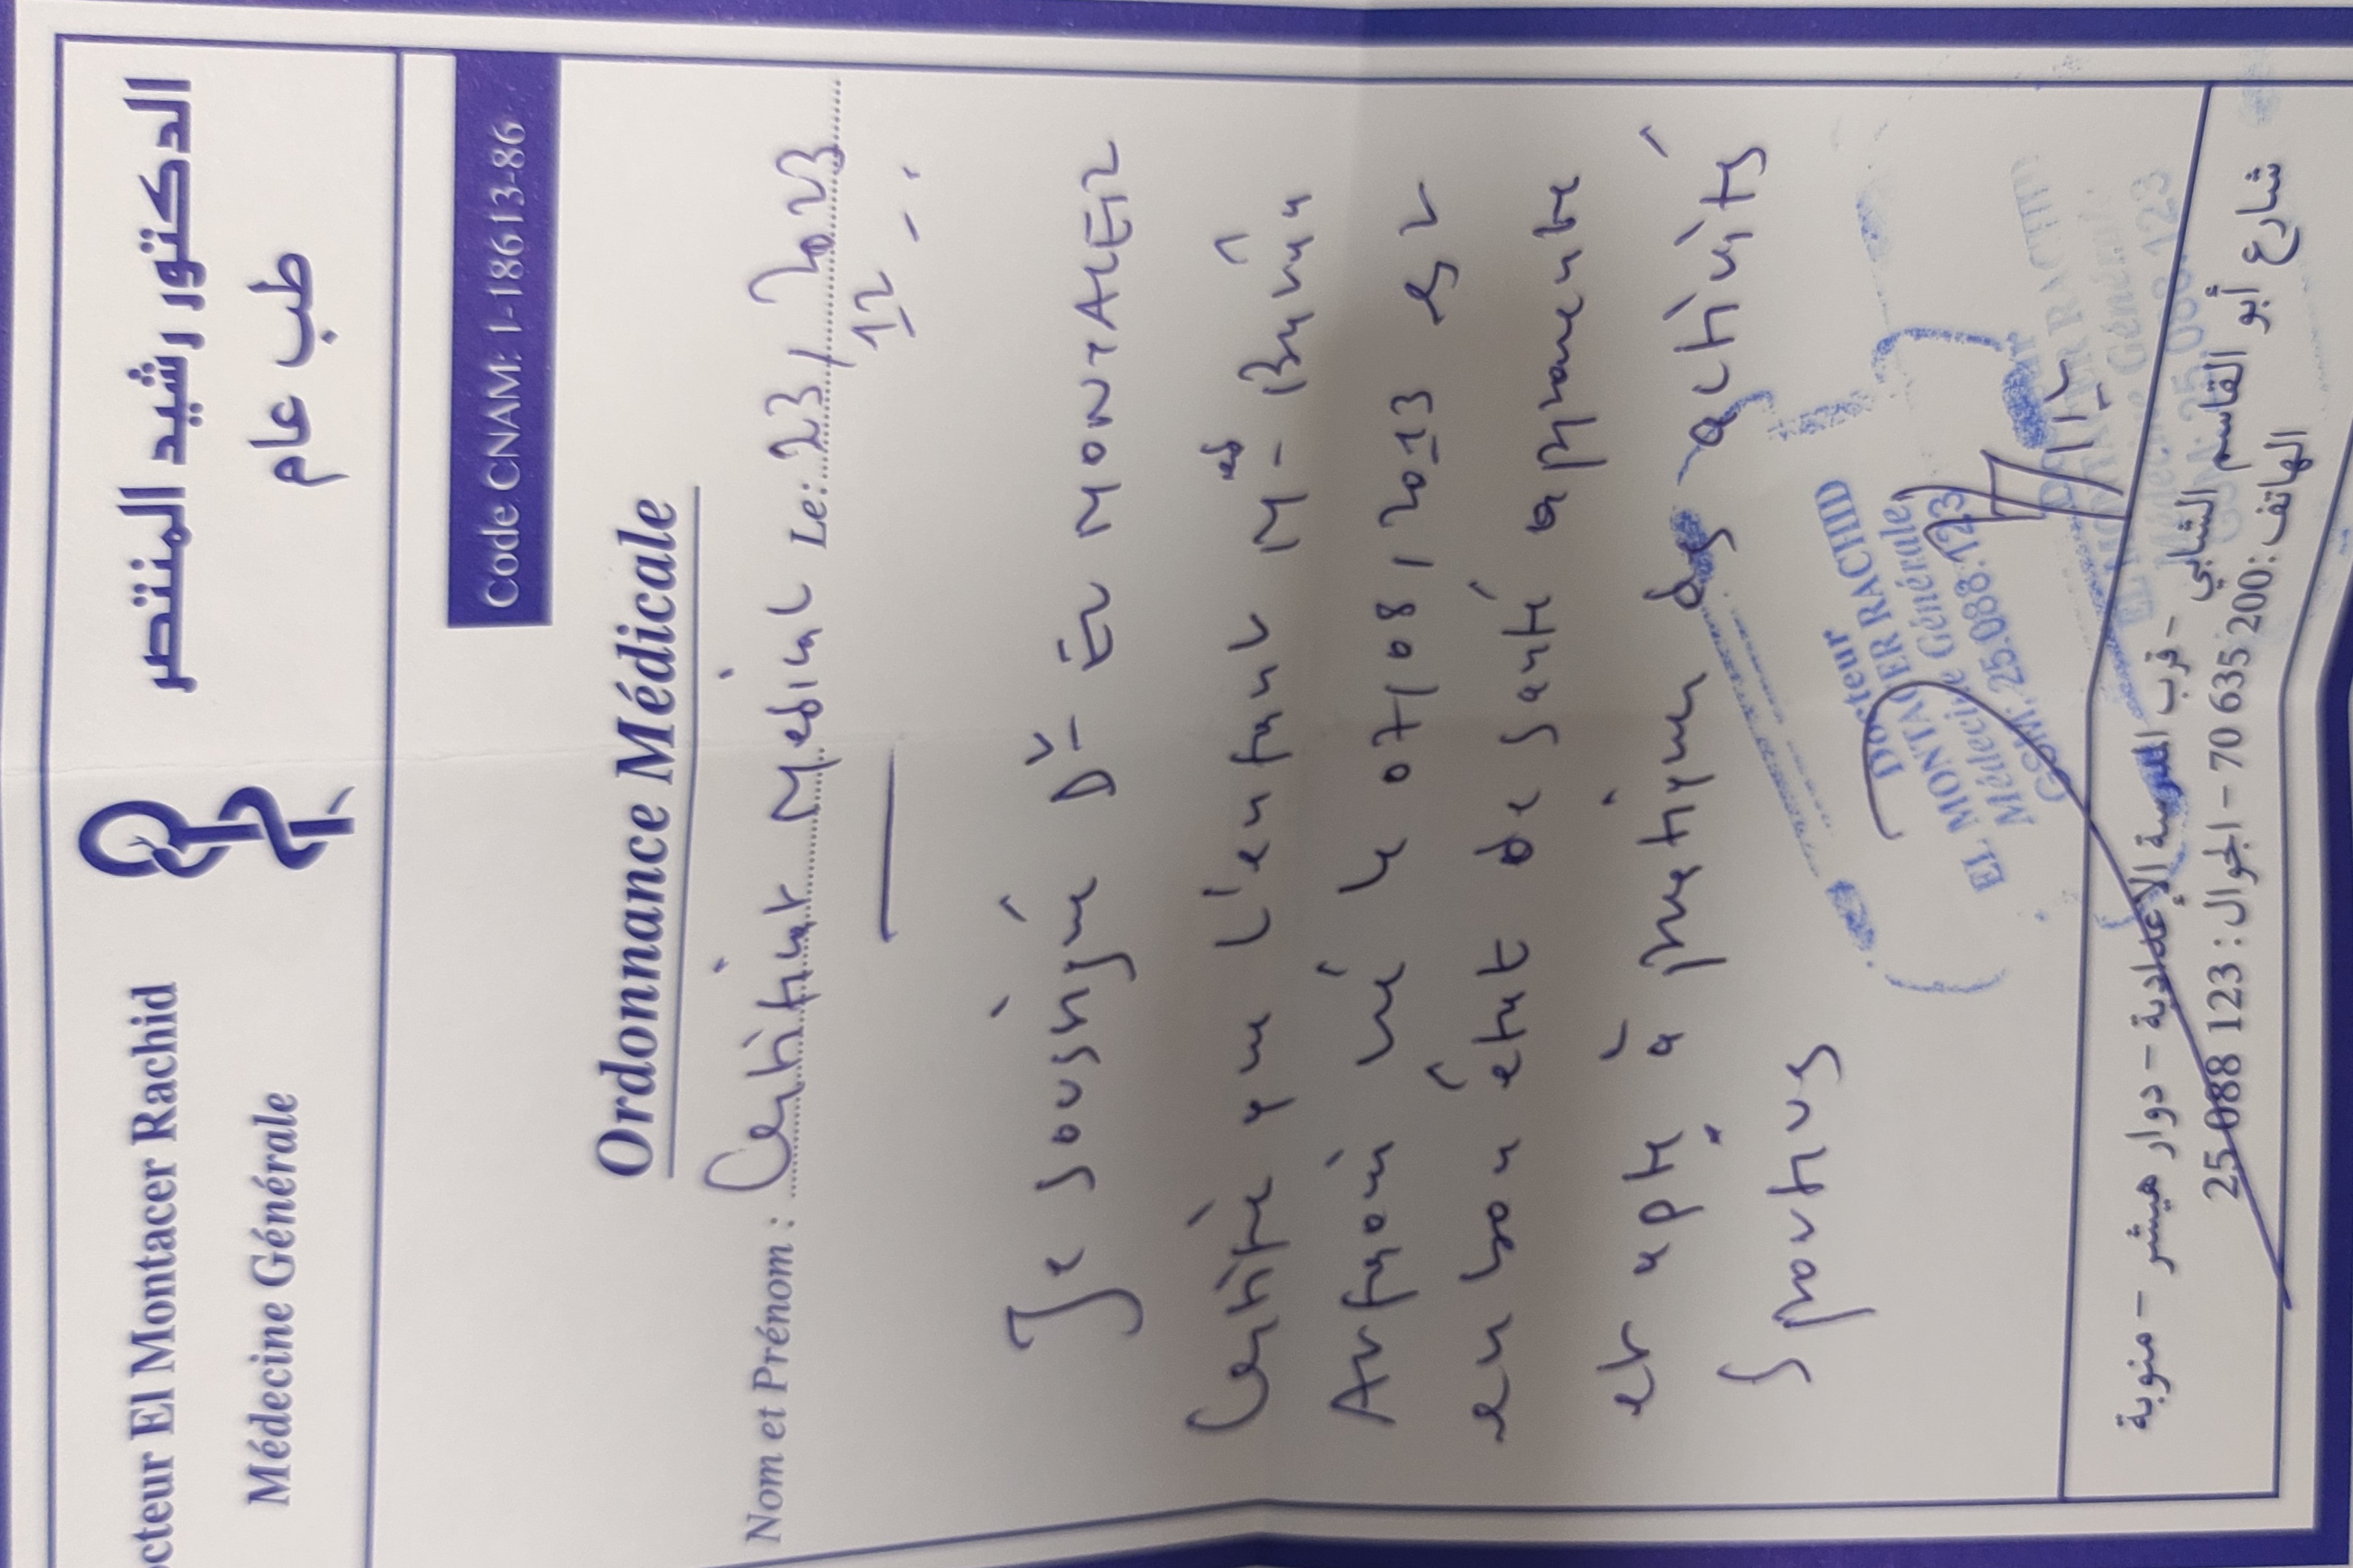 Docteur El Montacer Rachid
Médecine Générale
الدكتور رشيد المنتصر
طب عام
Code CNAM: 1-18613-86
Ordonnance Médicale
Nom et Prénom : Certificat Médical Le: 23/12/2023
Je soussigné Dr EL MONTACER
Certifie que l'enfant Med Amin
né le 07/08/2013 est
en bon état de santé apparente
et apte à pratiquer des activités
sportives
Docteur
EL MONTACER RACHID
Médecine Générale
GSM: 25.088.123
شارع أبو القاسم الشابي - قرب المدرسة الإعدادية - دوار هيشر - منوبة
الهاتف: 70 635 200 - الجوال: 25 088 123